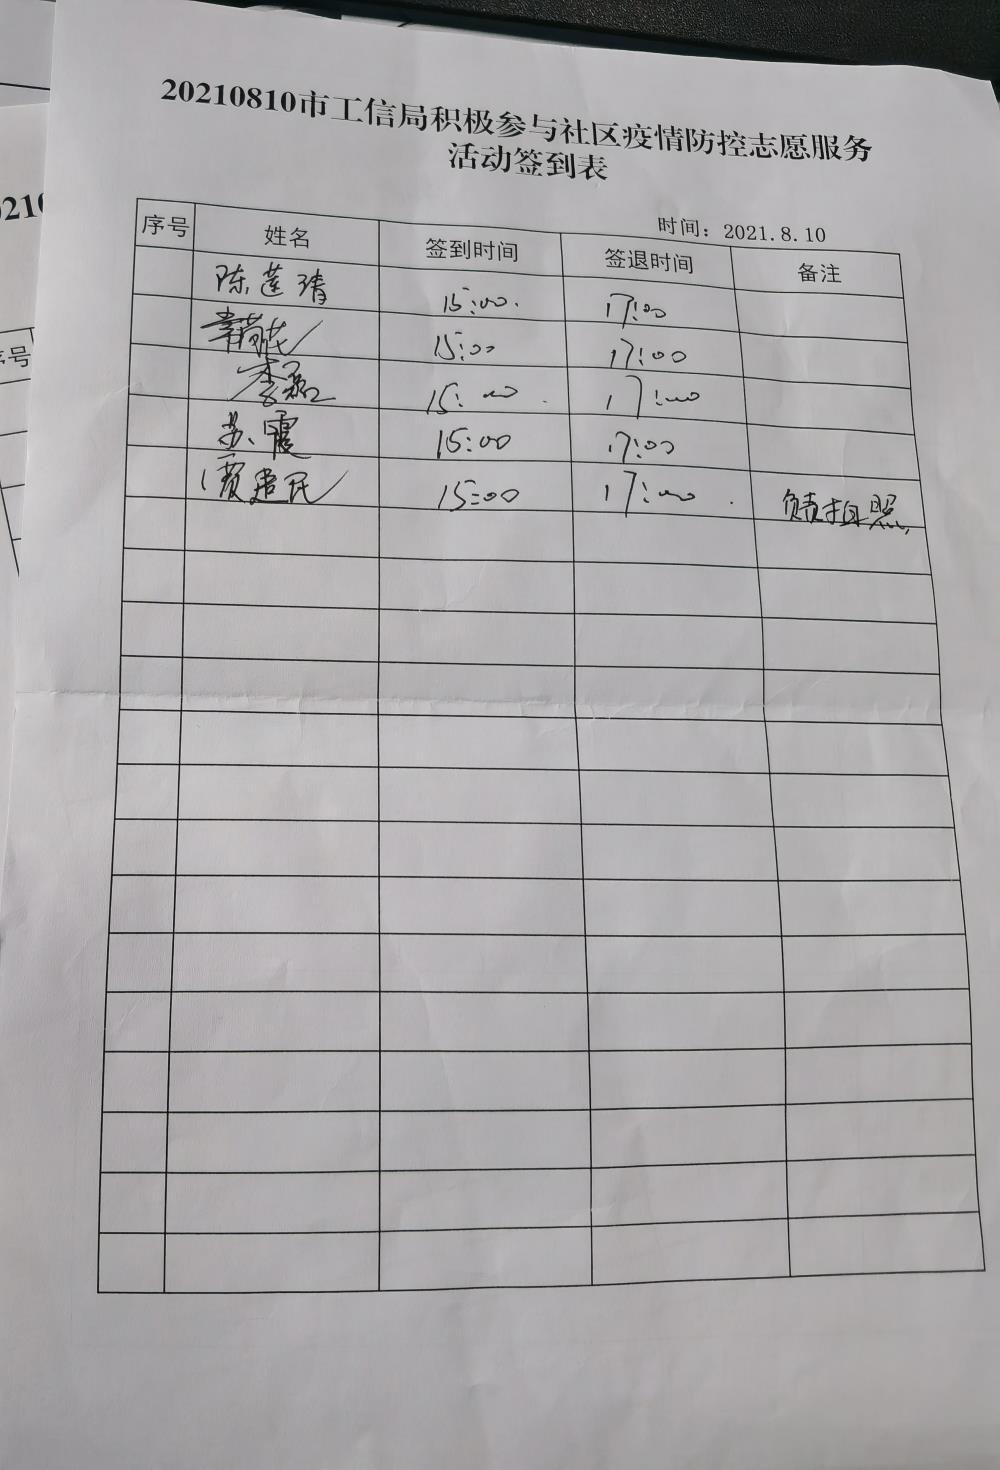 20210810市工信局积极参与社区疫情防控志愿服务
活动签到表
时间：2021.8.10
序号 姓名 签到时间 签退时间 备注
陈莲清 15:00. 17:00
15:00 17:00
李磊 15:00 17:00
苏霞 15:00 17:00
贾建民 15:00 17:00. 负责拍照
0210
序号